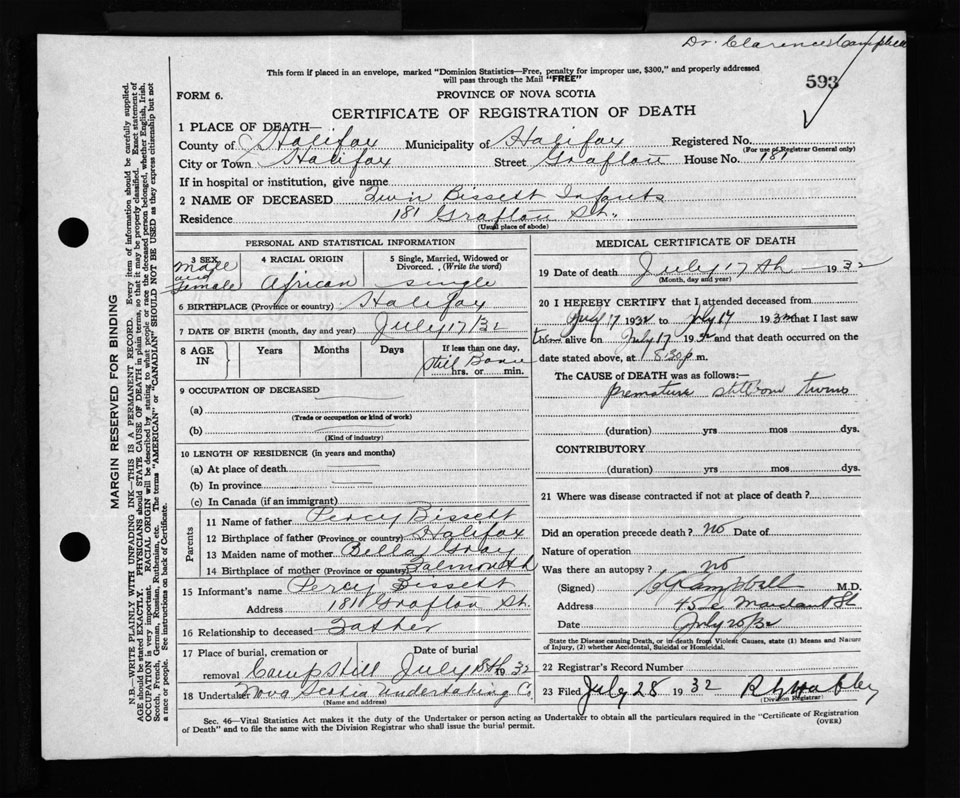 Dr. Clarence Campbell
This form if placed in an envelope, marked "Dominion Statistics—Free, penalty for improper use, $300," and properly addressed
will pass through the Mail "FREE"
593
FORM 6.
PROVINCE OF NOVA SCOTIA
CERTIFICATE OF REGISTRATION OF DEATH
1 PLACE OF DEATH—
County of Halifax Municipality of Halifax Registered No.
(For use of Registrar General only)
City or Town Halifax Street Grafton House No. 181
If in hospital or institution, give name
2 NAME OF DECEASED Twin Bissett Infants
Residence 181 Grafton St.
(Usual place of abode)
PERSONAL AND STATISTICAL INFORMATION
3 SEX Male and Female
4 RACIAL ORIGIN African
5 Single, Married, Widowed or Divorced. (Write the word) single
6 BIRTHPLACE (Province or country) Halifax
7 DATE OF BIRTH (month, day and year) July 17/32
8 AGE IN Years Months Days If less than one day, hrs. or min.
Still Borne
9 OCCUPATION OF DECEASED
(a)
(Trade or occupation or kind of work)
(b)
(Kind of industry)
10 LENGTH OF RESIDENCE (in years and months)
(a) At place of death
(b) In province
(c) In Canada (if an immigrant)
Parents
11 Name of father Percy Bissett
12 Birthplace of father (Province or country) Halifax
13 Maiden name of mother Bella Gray
14 Birthplace of mother (Province or country)
15 Informant's name Percy Bissett
Address 181 Grafton St.
16 Relationship to deceased Father
17 Place of burial, cremation or removal Camp Hill
Date of burial July 18th 1932
18 Undertaker Nova Scotia Undertaking Co
(Name and address)
MEDICAL CERTIFICATE OF DEATH
19 Date of death July 17th — 1932
(Month, day and year)
20 I HEREBY CERTIFY that I attended deceased from
July 17 1932 to July 17 1932 that I last saw
them alive on July 17 1932 and that death occurred on the
date stated above, at 8:30 p.m.
The CAUSE of DEATH was as follows:—
premature stillborn twins
(duration) yrs mos dys.
CONTRIBUTORY
(duration) yrs mos dys.
21 Where was disease contracted if not at place of death?
Did an operation precede death? no Date of
Nature of operation
Was there an autopsy? no
(Signed) Campbell M.D.
Address
Date July 20/32
State the Disease causing Death, or in death from Violent Causes, state (1) Means and Nature
of Injury, (2) whether Accidental, Suicidal or Homicidal.
22 Registrar's Record Number
23 Filed July 28 1932
(Division Registrar)
Sec. 46—Vital Statistics Act makes it the duty of the Undertaker or person acting as Undertaker to obtain all the particulars required in the "Certificate of Registration
of Death" and to file the same with the Division Registrar who shall issue the burial permit.
(OVER)
MARGIN RESERVED FOR BINDING
N.B.—WRITE PLAINLY WITH UNFADING INK—THIS IS A PERMANENT RECORD. Every item of information should be carefully supplied.
AGE should be stated EXACTLY. PHYSICIANS should STATE CAUSE OF DEATH in plain terms, so that it may be properly classified. Exact statement of
OCCUPATION is very important. RACIAL ORIGIN will be described by stating to what people or race the deceased person belonged, whether English, Irish,
Scotch, French, German, Russian, Ruthenian, etc. The terms "AMERICAN" or "CANADIAN" SHOULD NOT BE USED as they express citizenship but not
a race or people. See instructions on back of Certificate.